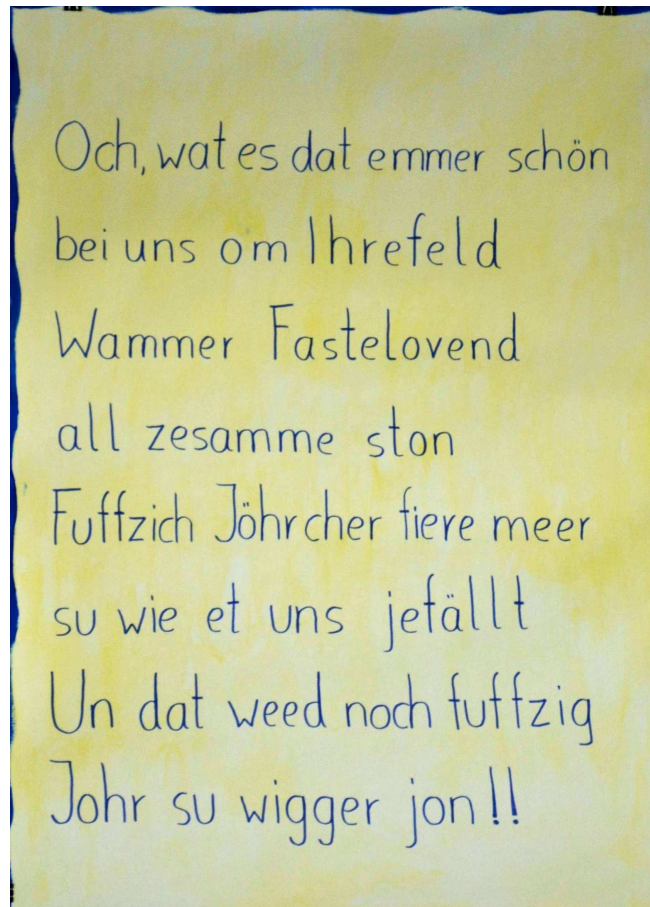 Och, wat es dat emmer schön
bei uns om Ihrefeld
Wammer Fastelovend
all zesamme ston
Fuffzich Jöhrcher fiere meer
su wie et uns jefällt
Un dat weed noch fuffzig
Johr su wigger jon!!